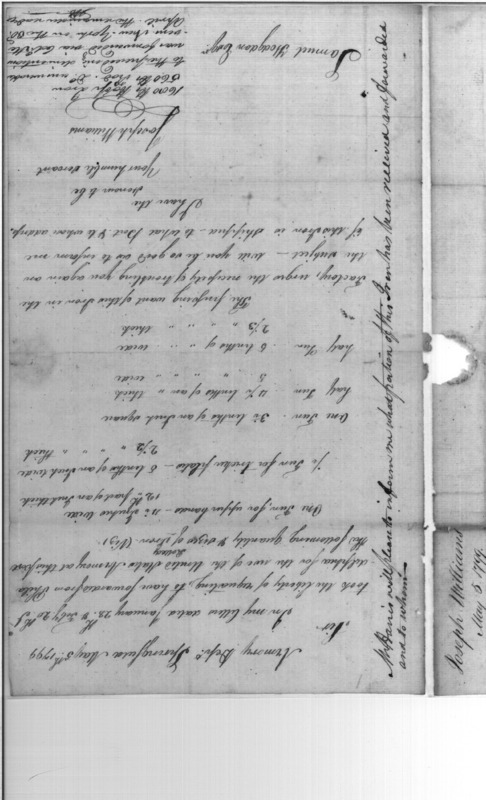 Armory Dept. Springfield May 5th 1799
Sir
In my letters dated January 23d & Feby 20th I
took the liberty of requesting, to have forwarded from Phila
delphia for the use of the United States Armory at this place
the following quantity & size of Iron (Viz)
One Tun for upper bands — Inches wide
12th part of an Inch thick
½ Tun for Trelin plates — 6 tenths of an Inch wide
2½ " " " thick
One Tun 3½ tenths of an Inch Square
half Tun 4½ tenths of an " thick
8 " " wide
half Tun 6 tenths of " " wide
2½ " " " thick
The pressing want of this Iron in the
Factory, urges the necessity of troubling you again on
the subject — will you be so good as to inform me
if the Iron is shipped — to what Port & to whom address.
I have the
honour to be
Your humble Servant
Joseph Williams
Samuel Hodgdon Esqr
1600 lbs Hoop Iron
560 lbs rod Do
to the preceding dimentions
was forwarded via
Vern New York on the 20
April the remainder under
Mr Harris will please to inform me what portion of this Iron has been received and forwarded
and to whom —
Joseph Williams
May 5. 1799.